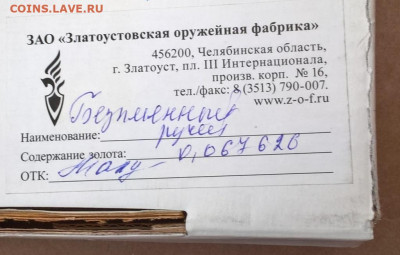 COINS.LAVE.RU
ЗАО «Златоустовская оружейная фабрика»
456200, Челябинская область,
г. Златоуст, пл. III Интернационала,
произв. корп. № 16,
тел./факс: 8 (3513) 790-007.
www.z-o-f.ru
Безымянный
Наименование: ручей
Содержание золота: 0,067626
ОТК: